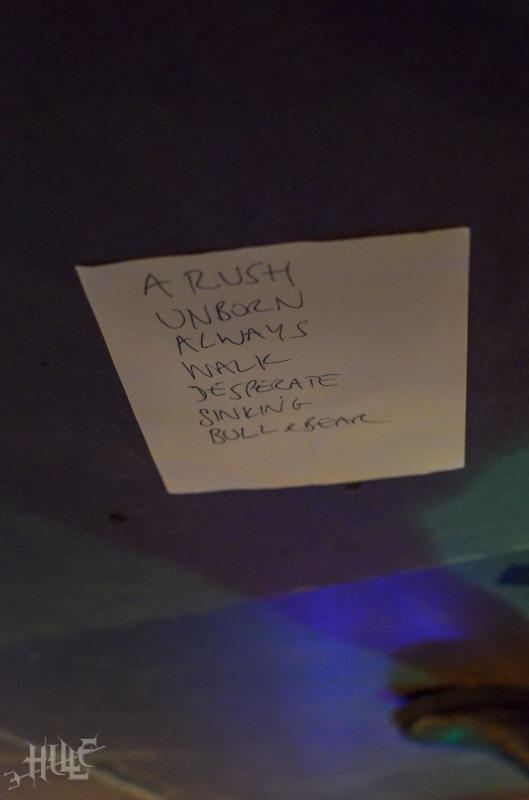 A RUSH
UNBORN
ALWAYS
WALK
DESPERATE
SINKING
BULL & BEAR